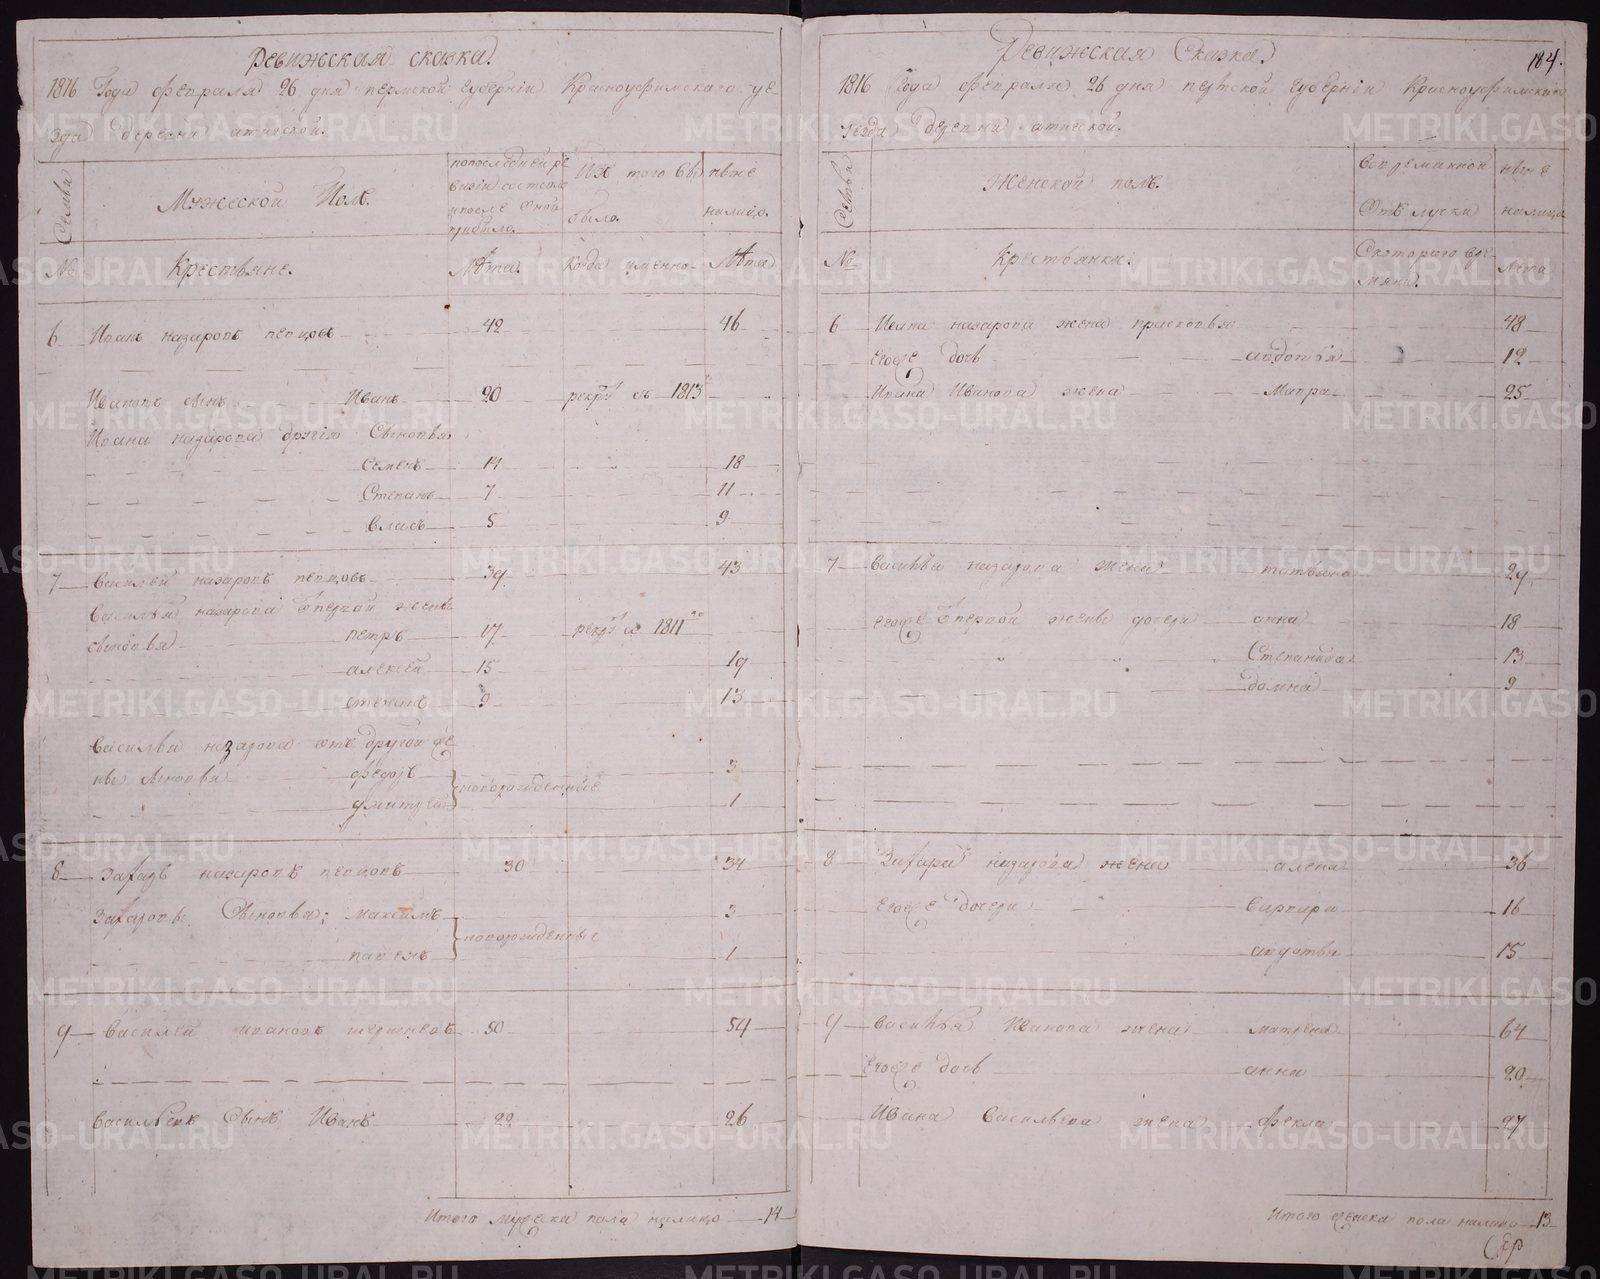 Ревижская сказка.
1816 Года февраля 26 дня пермской губернiи Красноуфимскаго уе
зда деревни атигской.
Семьи
Мужеской Полъ.
попоследней ре
визiи состояло
ипосле оной
прибыло.
Изъ того выбыло.
ныне налицо.
№
Крестьяне.
Лѣта.
Когда именно
Лѣта
6 Иванъ назаровъ певцовъ 42 46
Ивановъ сынъ Иванъ 20 рекрут въ 1813
Ивана назарова другiя Сыновья
Семенъ 14 18
Степанъ 7 11
власъ 5 9
7 василей назаровъ певцовъ 39 43
василья назарова Отпервой жены
сыновья петръ 17 рекрут въ 1811
алексей 15 19
степанъ 9 13
василья назарова отъ другой же
ны сыновья федоръ 3
дмитрей новорожденные 1
8 Захаръ назаровъ певцовъ 30 34
Захаровы Сыновья: максимъ 3
новорожденные
павелъ 1
9 василей ивановъ 50 54
васильевъ Сынъ Иванъ 22 26
Итого мужеска пола налицо 14
Ревижская Сказка.
184.
1816 Года февраля 26 дня пермской губернiи Красноуфимскаго
уезда деревни атигской.
Семьи
Женской полъ.
Вовременной
Отлучки
ныне
налицо
№
Крестьянки.
Скотораго вре
мяни.
Лета
6 Ивана назарова жена прасковья 48
Егоже дочь авдотья 12
Ивана Иванова жена Мавра 25
7 василья назарова жена татьяна 29
егоже Отпервой жены дочери анна 18
Степанида 13
домна 9
8 Захара назарова жена алена 36
Егоже дочери варвара 16
авдотья 15
9 василья Иванова жена матрена 64
Егоже дочь анна 20
Ивана Васильева жена фекла 27
Итого женска пола налицо 13
METRIKI.GASO-URAL.RU